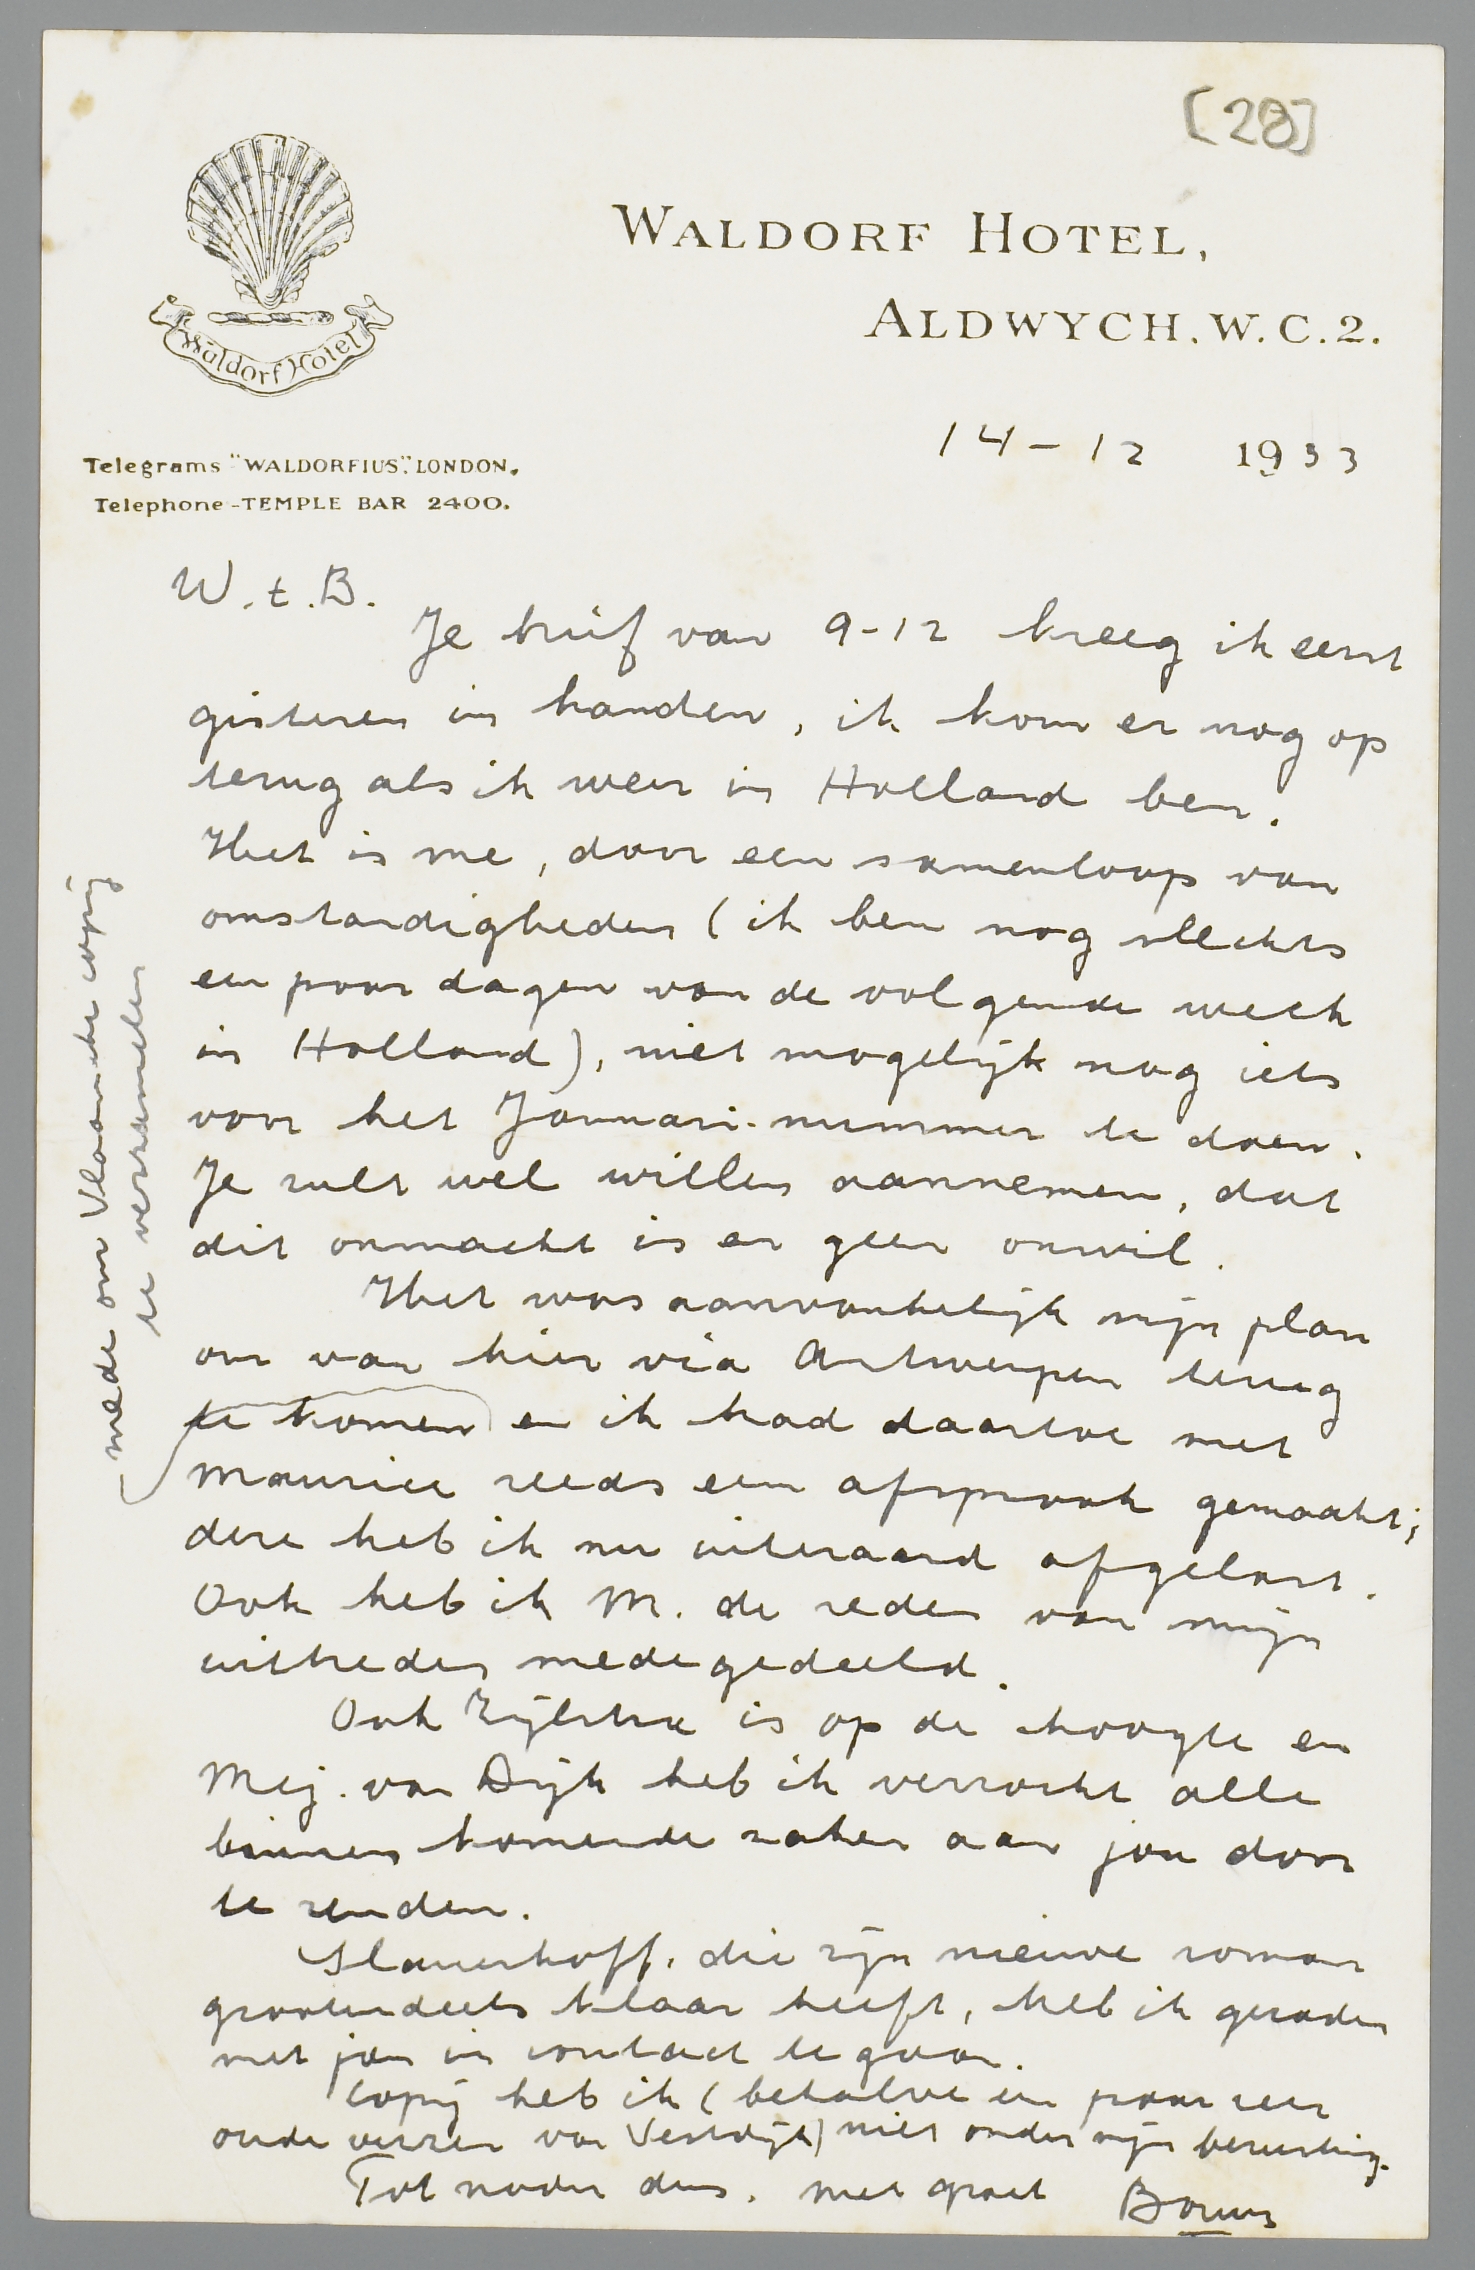 [28]
WALDORF HOTEL,
ALDWYCH. W. C. 2.
Waldorf Hotel
Telegrams "WALDORFIUS", LONDON.
Telephone - TEMPLE BAR 2400.
14-12 1933
W. t. B.
Je brief van 9-12 kreeg ik eerst
gisteren in handen, ik kom er nog op
terug als ik weer in Holland ben.
Het is me, door een samenloop van
omstandigheden (ik ben nog slechts
een paar dagen van de volgende week
in Holland), niet mogelijk nog iets
voor het Januari-nummer te doen.
Je zult wel willen aannemen, dat
dit onmacht is en geen onwil.
Het was aanvankelijk mijn plan
om van hier via Antwerpen terug
te komen en ik had daartoe met
Maurice reeds een afspraak gemaakt;
deze heb ik nu uiteraard afgelast.
Ook heb ik M. de reden van mijn
uittreden medegedeeld.
Ook Zijlstra is op de hoogte en
Mej. van Dijk heb ik verzocht alle
binnen komende zaken aan jou door
te zenden.
Slauerhoff, die zijn nieuwe roman
grootendeels klaar heeft, heb ik geraden
met jou in contact te gaan.
Copij heb ik (behalve een paar zeer
oude verzen van Vestdijk) niet onder mijn berusting.
Tot nader dus. met groet Bouws
mede om Vlaamsche copij
te verzamelen